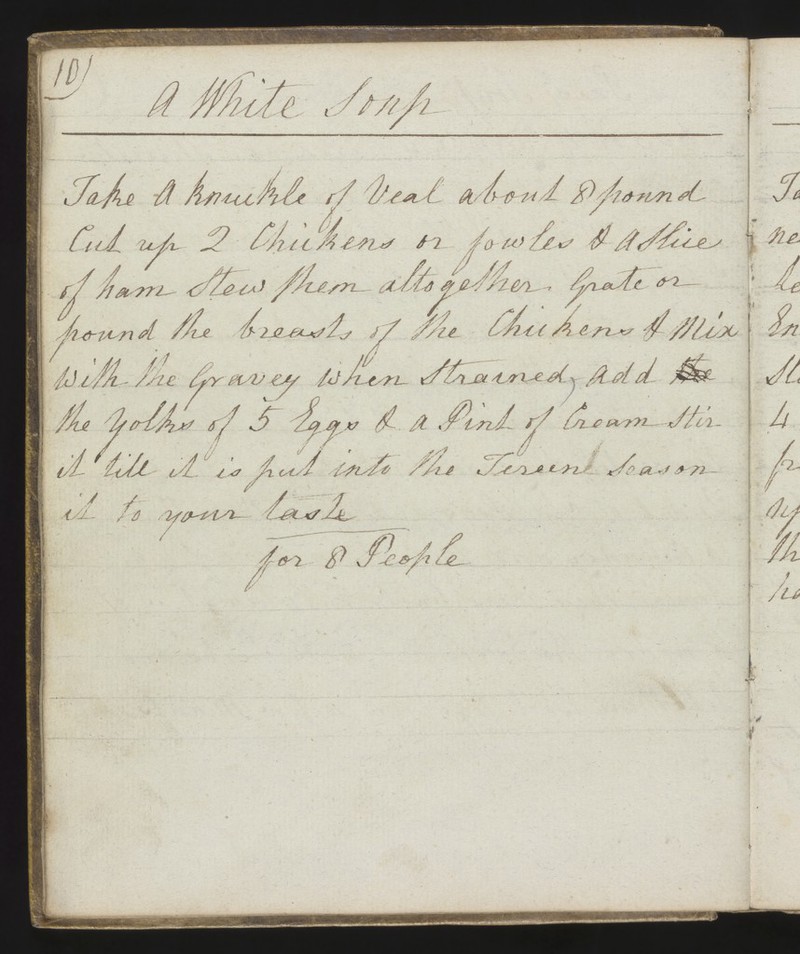 10)
A White Soup
Take A knuckle of Veal about 8 pound
Cut up 2 Chickens or fowles & A Slice
of ham Stew them altogether. Grate or
pound the breasts of the Chickens & Mix
With the Gravey when Strained, add
the Yolks of 5 Eggs & a Pint of Cream Stir
it till it is put into the Tereen Season
it to your taste
for 8 People
Ta
ne
be
En
Sl
4
fr
up
th
ha